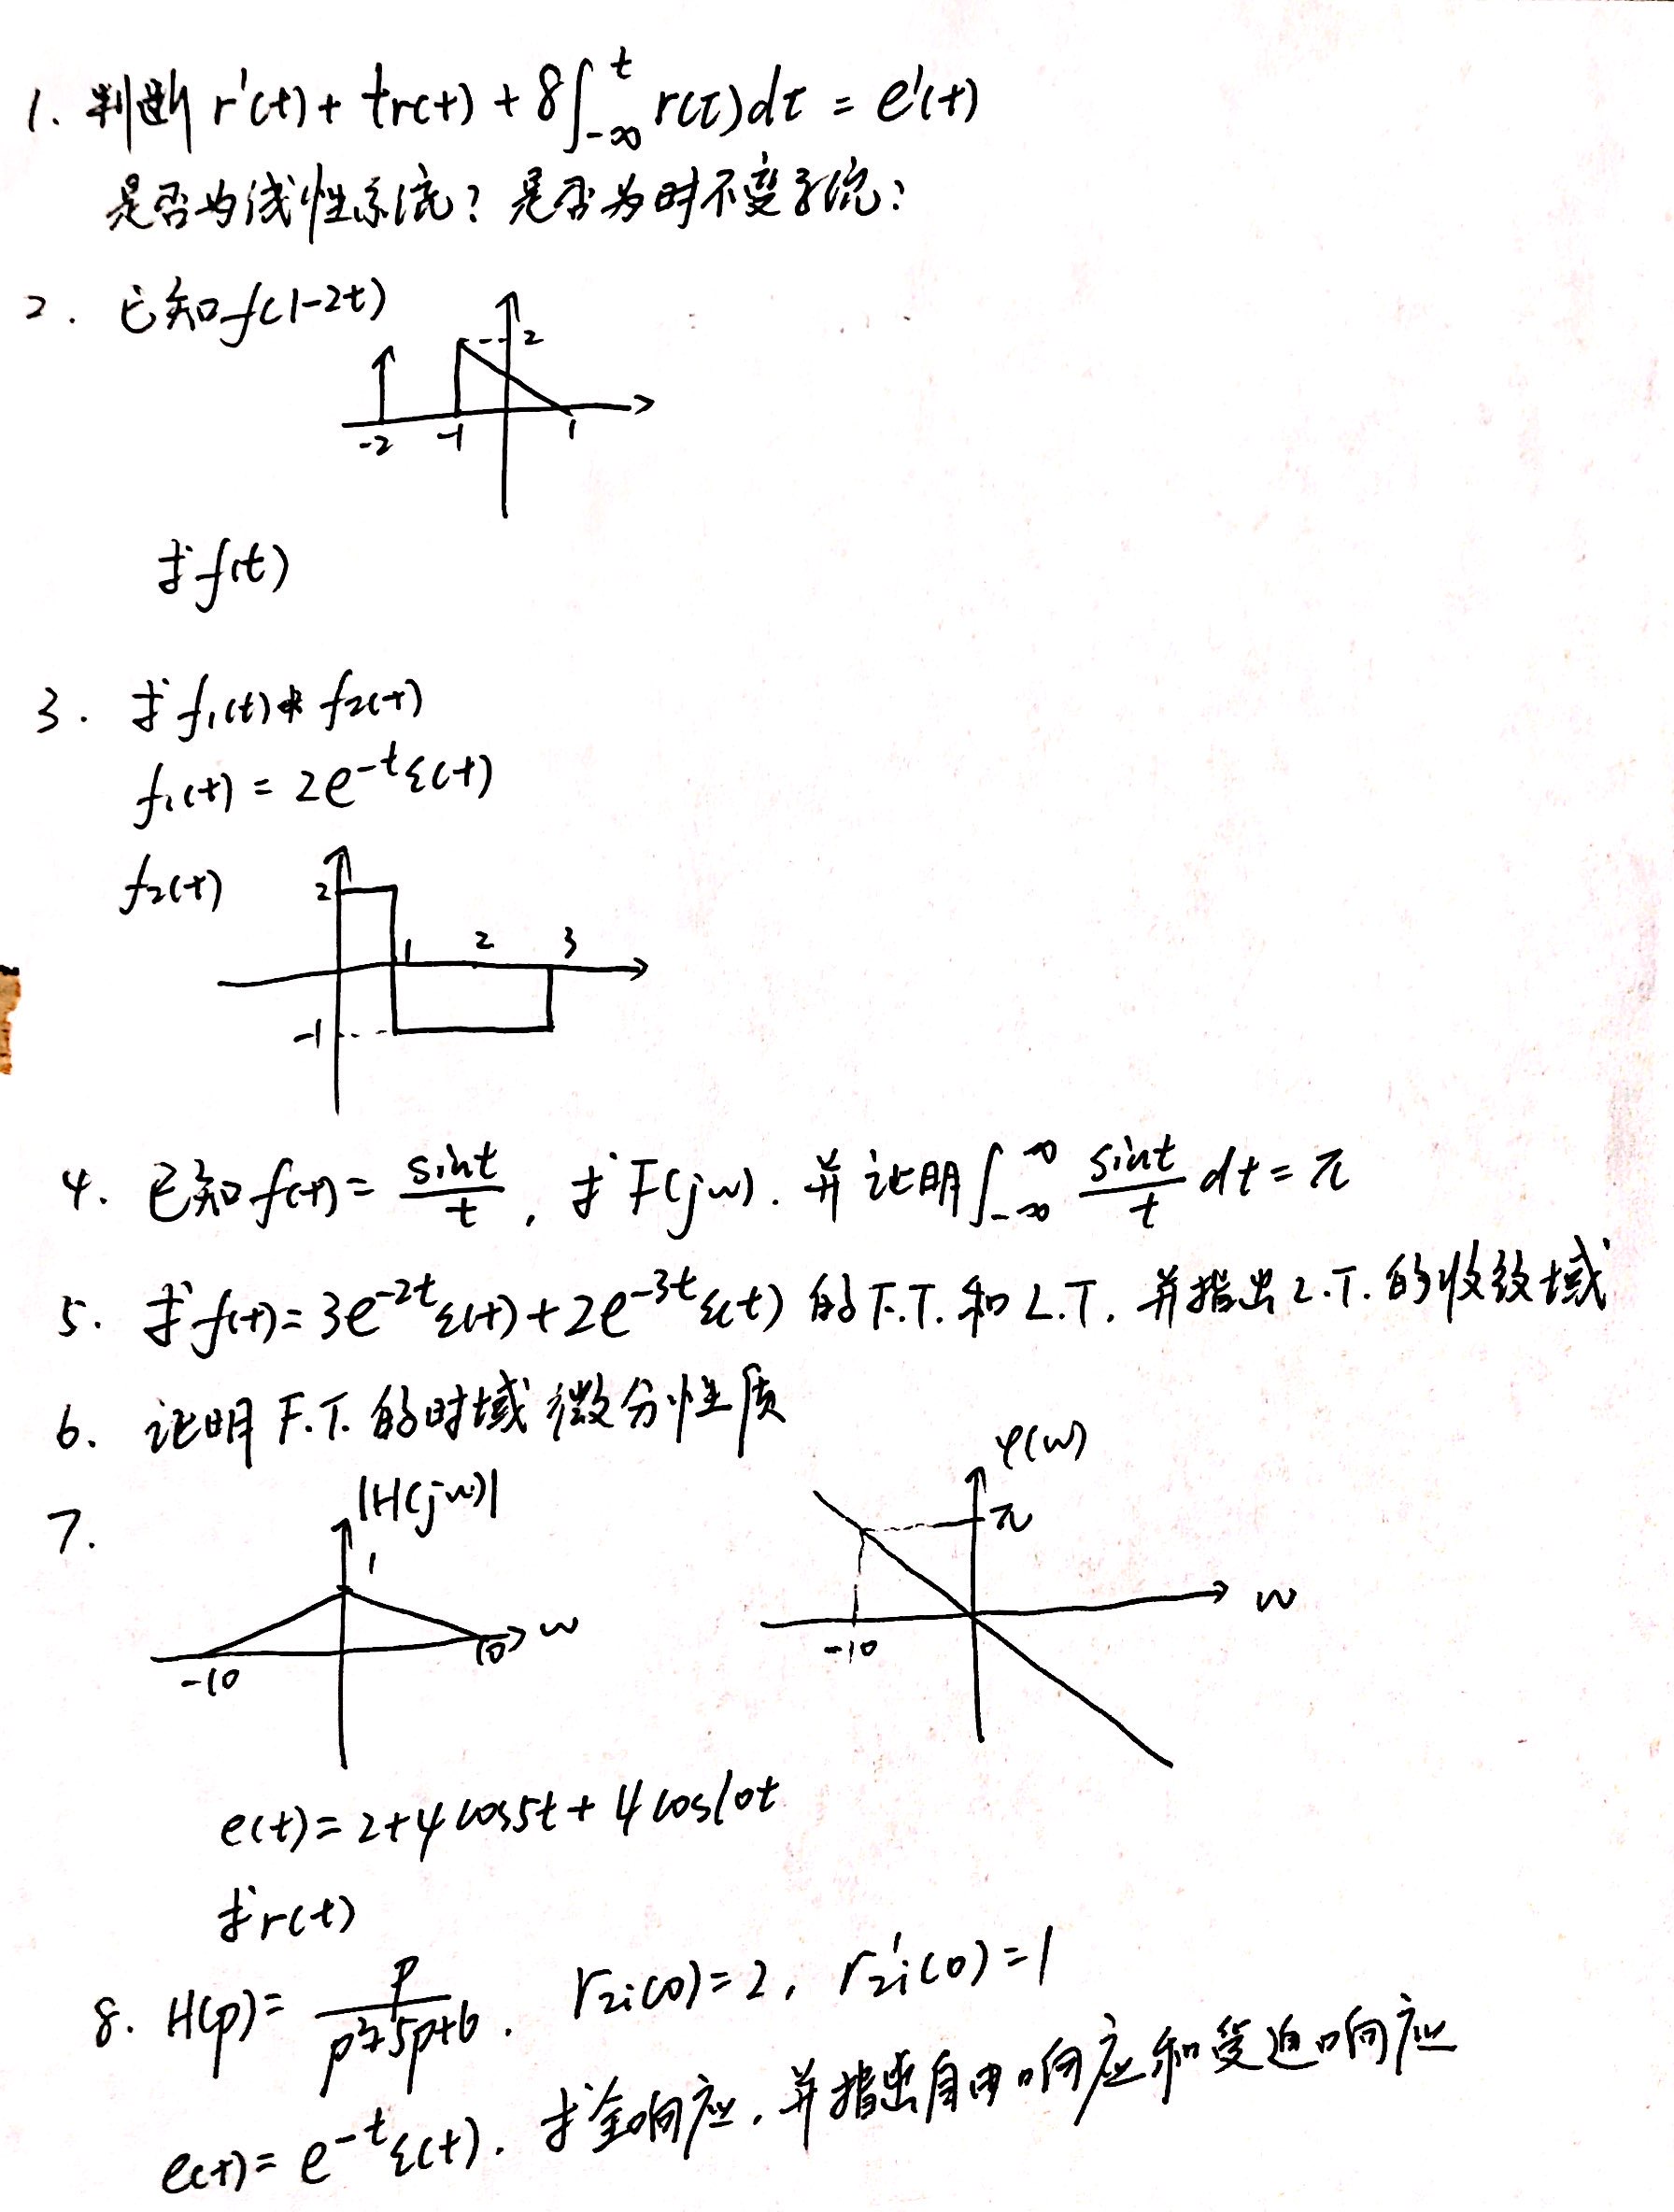 1. 判断 r'(t) + tr(t) + 8∫_{-∞}^{t} r(τ)dτ = e'(t)
是否为线性系统? 是否为时不变系统?
2. 已知 f(1-2t)
2
-2 -1 1
求 f(t)
3. 求 f₁(t) * f₂(t)
f₁(t) = 2e^{-t}ε(t)
f₂(t)
2
1 2 3
-1
4. 已知 f(t) = sint/t, 求 F(jω). 并证明 ∫_{-∞}^{∞} sint/t dt = π
5. 求 f(t) = 3e^{-2t}ε(t) + 2e^{-3t}ε(t) 的 F.T. 和 L.T. 并指出 L.T. 的收敛域
6. 证明 F.T. 的时域微分性质
7. |H(jω)| φ(ω)
1 π
-10 10 ω -10 ω
e(t) = 2+4cos5t + 4cos10t
求 r(t)
8. H(p) = p/(p²+5p+6). r_{zi}(0)=2, r'_{zi}(0)=1
e(t) = e^{-t}ε(t). 求全响应, 并指出自由响应和受迫响应